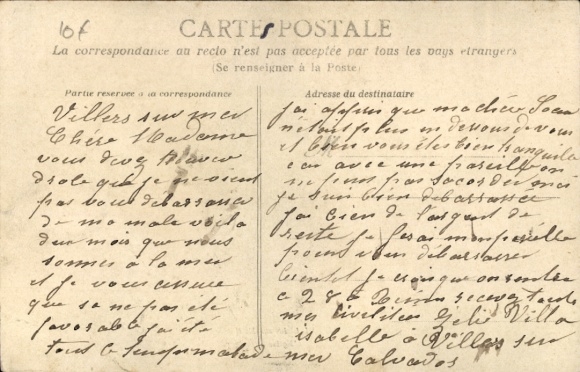 10f
CARTE POSTALE
La correspondance au recto n'est pas acceptée par tous les pays étrangers
(Se renseigner à la Poste)
Partie réservée à la correspondance
Villers sur mer
Chére Madame
vous devez trouver
drole que je ne vient
pas vous debarrasser
de ma male voila
deux mois que nous
sommes à la mer
et je vous assure
que sa ne pas été
favorable j'ai été
tout le temps malade
Adresse du destinataire
j'ai appris que ma chère
n'étais plus en dessous de vous
et bien vous êtes bien tranquile
car avec une pareille on
ne peut pas sacorder moi
je suis bien debarrassée
j'ai bien de l'argent de
reste je ferai mon possible
pour vous débarrasser
bientôt je crois que on rentre
le 28 à recevez toute
mes civilités Villa
isabelle à Villers sur
mer Calvados